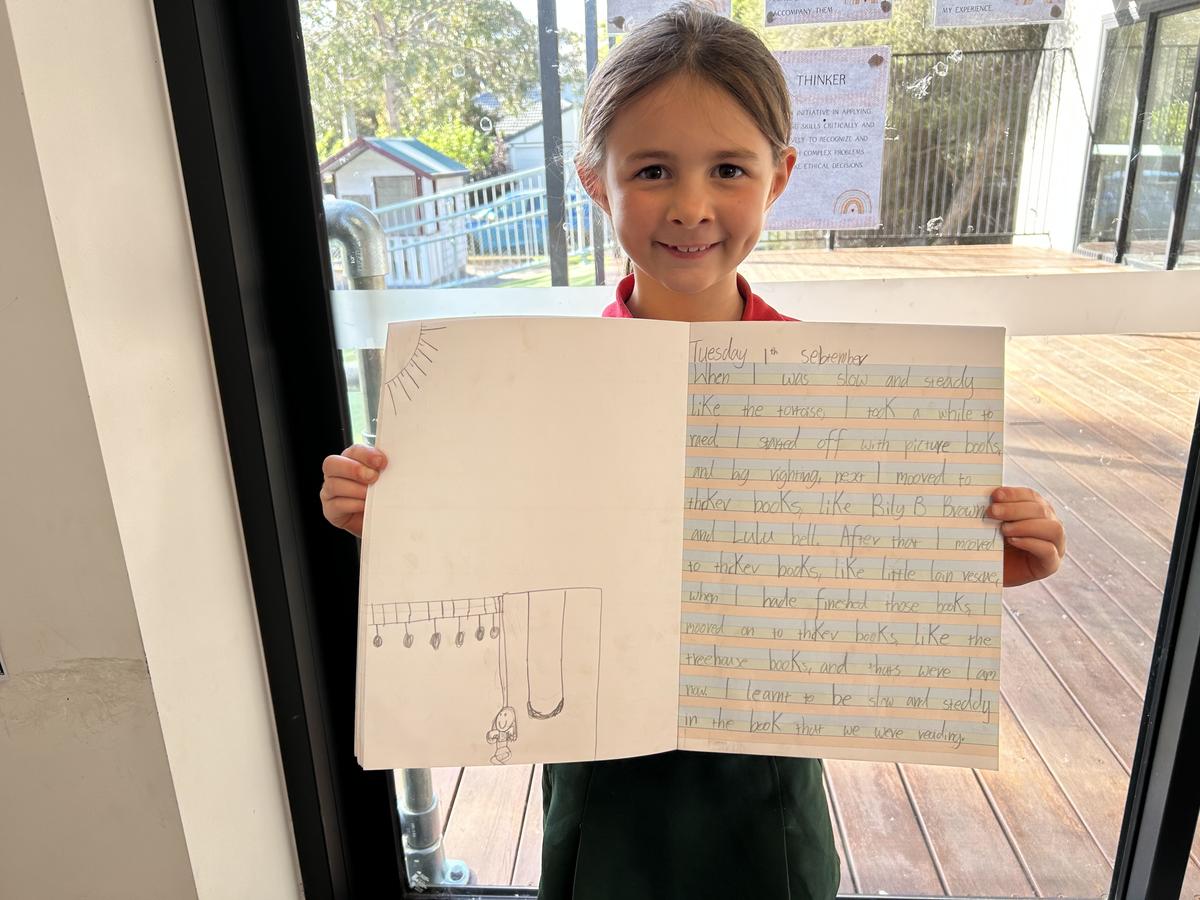 ACCOMPANY THEM
MY EXPERIENCE.
THINKER
INITIATIVE IN APPLYING
SKILLS CRITICALLY AND
TO RECOGNIZE AND
COMPLEX PROBLEMS
ETHICAL DECISIONS.
Tuesday 1th sebtember
When I was slow and steady
like the tortoise, I took a while to
raed. I starded off with picture books,
and big righting, next I mooved to
thicKer books, like Bily B Brown
and Lulu bell. After that I mooved
to thicKer books, like little loin rescue,
when I hade fineshed those books, I
mooved on to thicKer books, like the
treehouse books, and thats were I am
now. I learnt to be slow and steddy
in the book that we were reading.